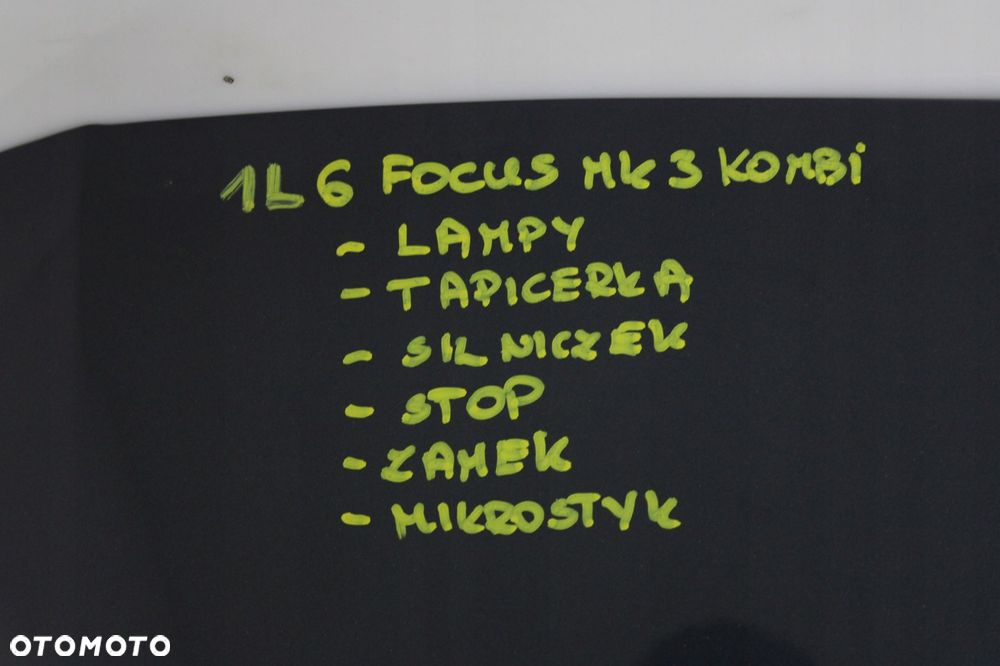 1L6 FOCUS MK3 KOMBi
- LAMPY
- TAPICERKA
- SILNICZEK
- STOP
- ZAMEK
- MIKROSTYK
OTOMOTO